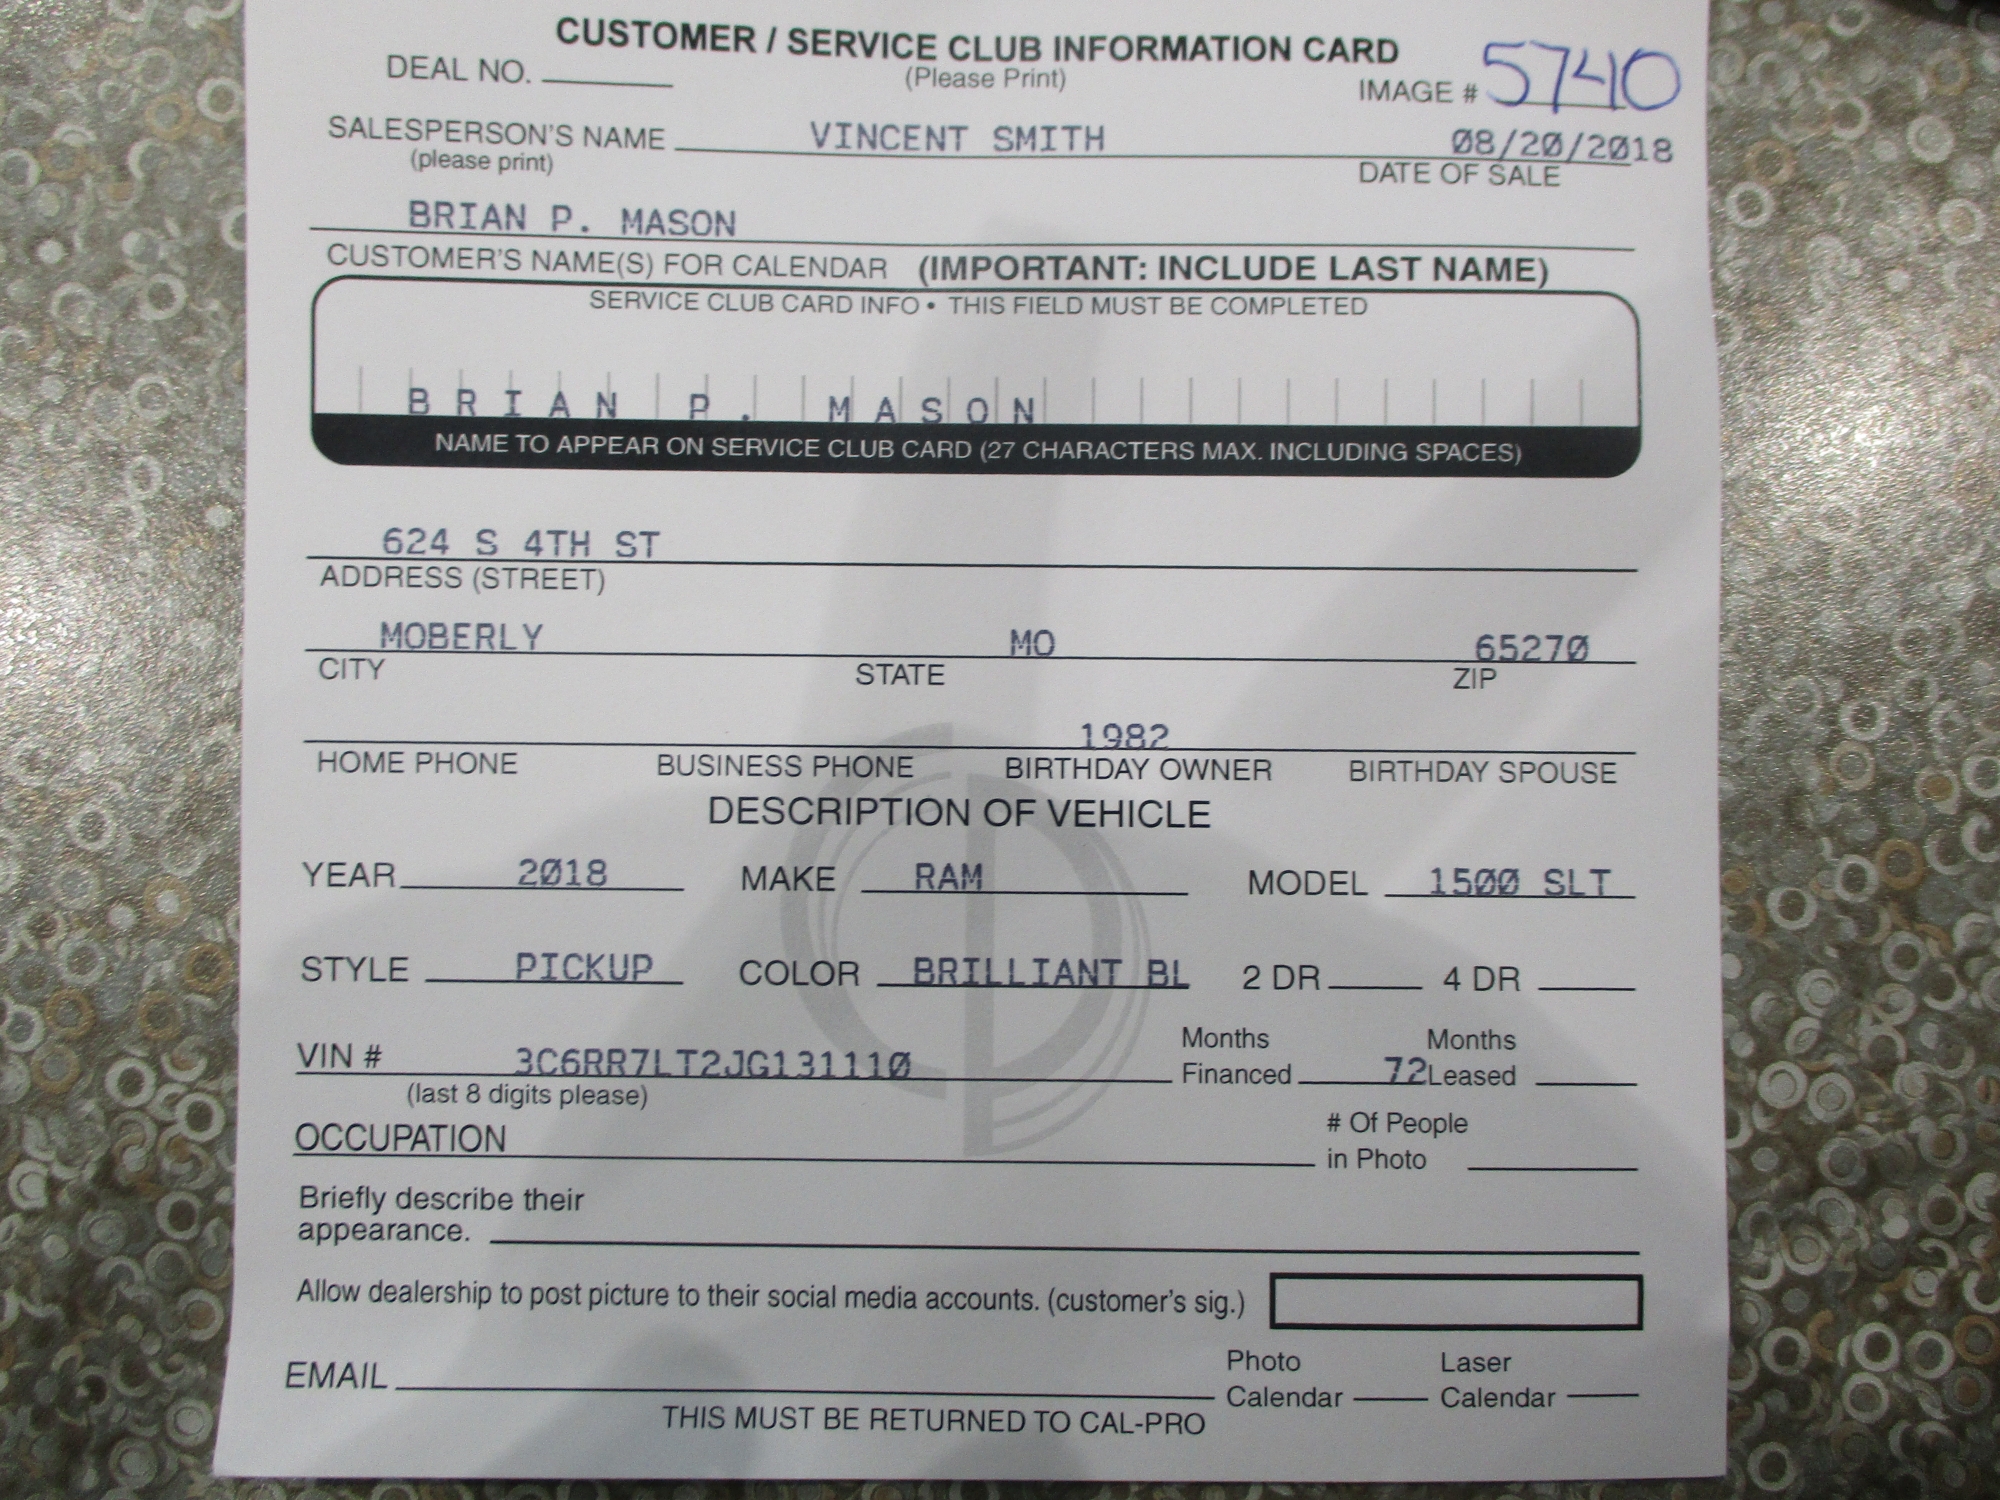 CUSTOMER / SERVICE CLUB INFORMATION CARD
DEAL NO. (Please Print) IMAGE # 5740
SALESPERSON'S NAME VINCENT SMITH 08/20/2018
(please print) DATE OF SALE
BRIAN P. MASON
CUSTOMER'S NAME(S) FOR CALENDAR (IMPORTANT: INCLUDE LAST NAME)
SERVICE CLUB CARD INFO • THIS FIELD MUST BE COMPLETED
BRIAN P. MASON
NAME TO APPEAR ON SERVICE CLUB CARD (27 CHARACTERS MAX. INCLUDING SPACES)
624 S 4TH ST
ADDRESS (STREET)
MOBERLY MO 65270
CITY STATE ZIP
1982
HOME PHONE BUSINESS PHONE BIRTHDAY OWNER BIRTHDAY SPOUSE
DESCRIPTION OF VEHICLE
YEAR 2018 MAKE RAM MODEL 1500 SLT
STYLE PICKUP COLOR BRILLIANT BL 2 DR 4 DR
Months Months
VIN # 3C6RR7LT2JG131110 Financed 72 Leased
(last 8 digits please)
OCCUPATION # Of People
in Photo
Briefly describe their
appearance.
Allow dealership to post picture to their social media accounts. (customer's sig.)
Photo Laser
EMAIL Calendar Calendar
THIS MUST BE RETURNED TO CAL-PRO